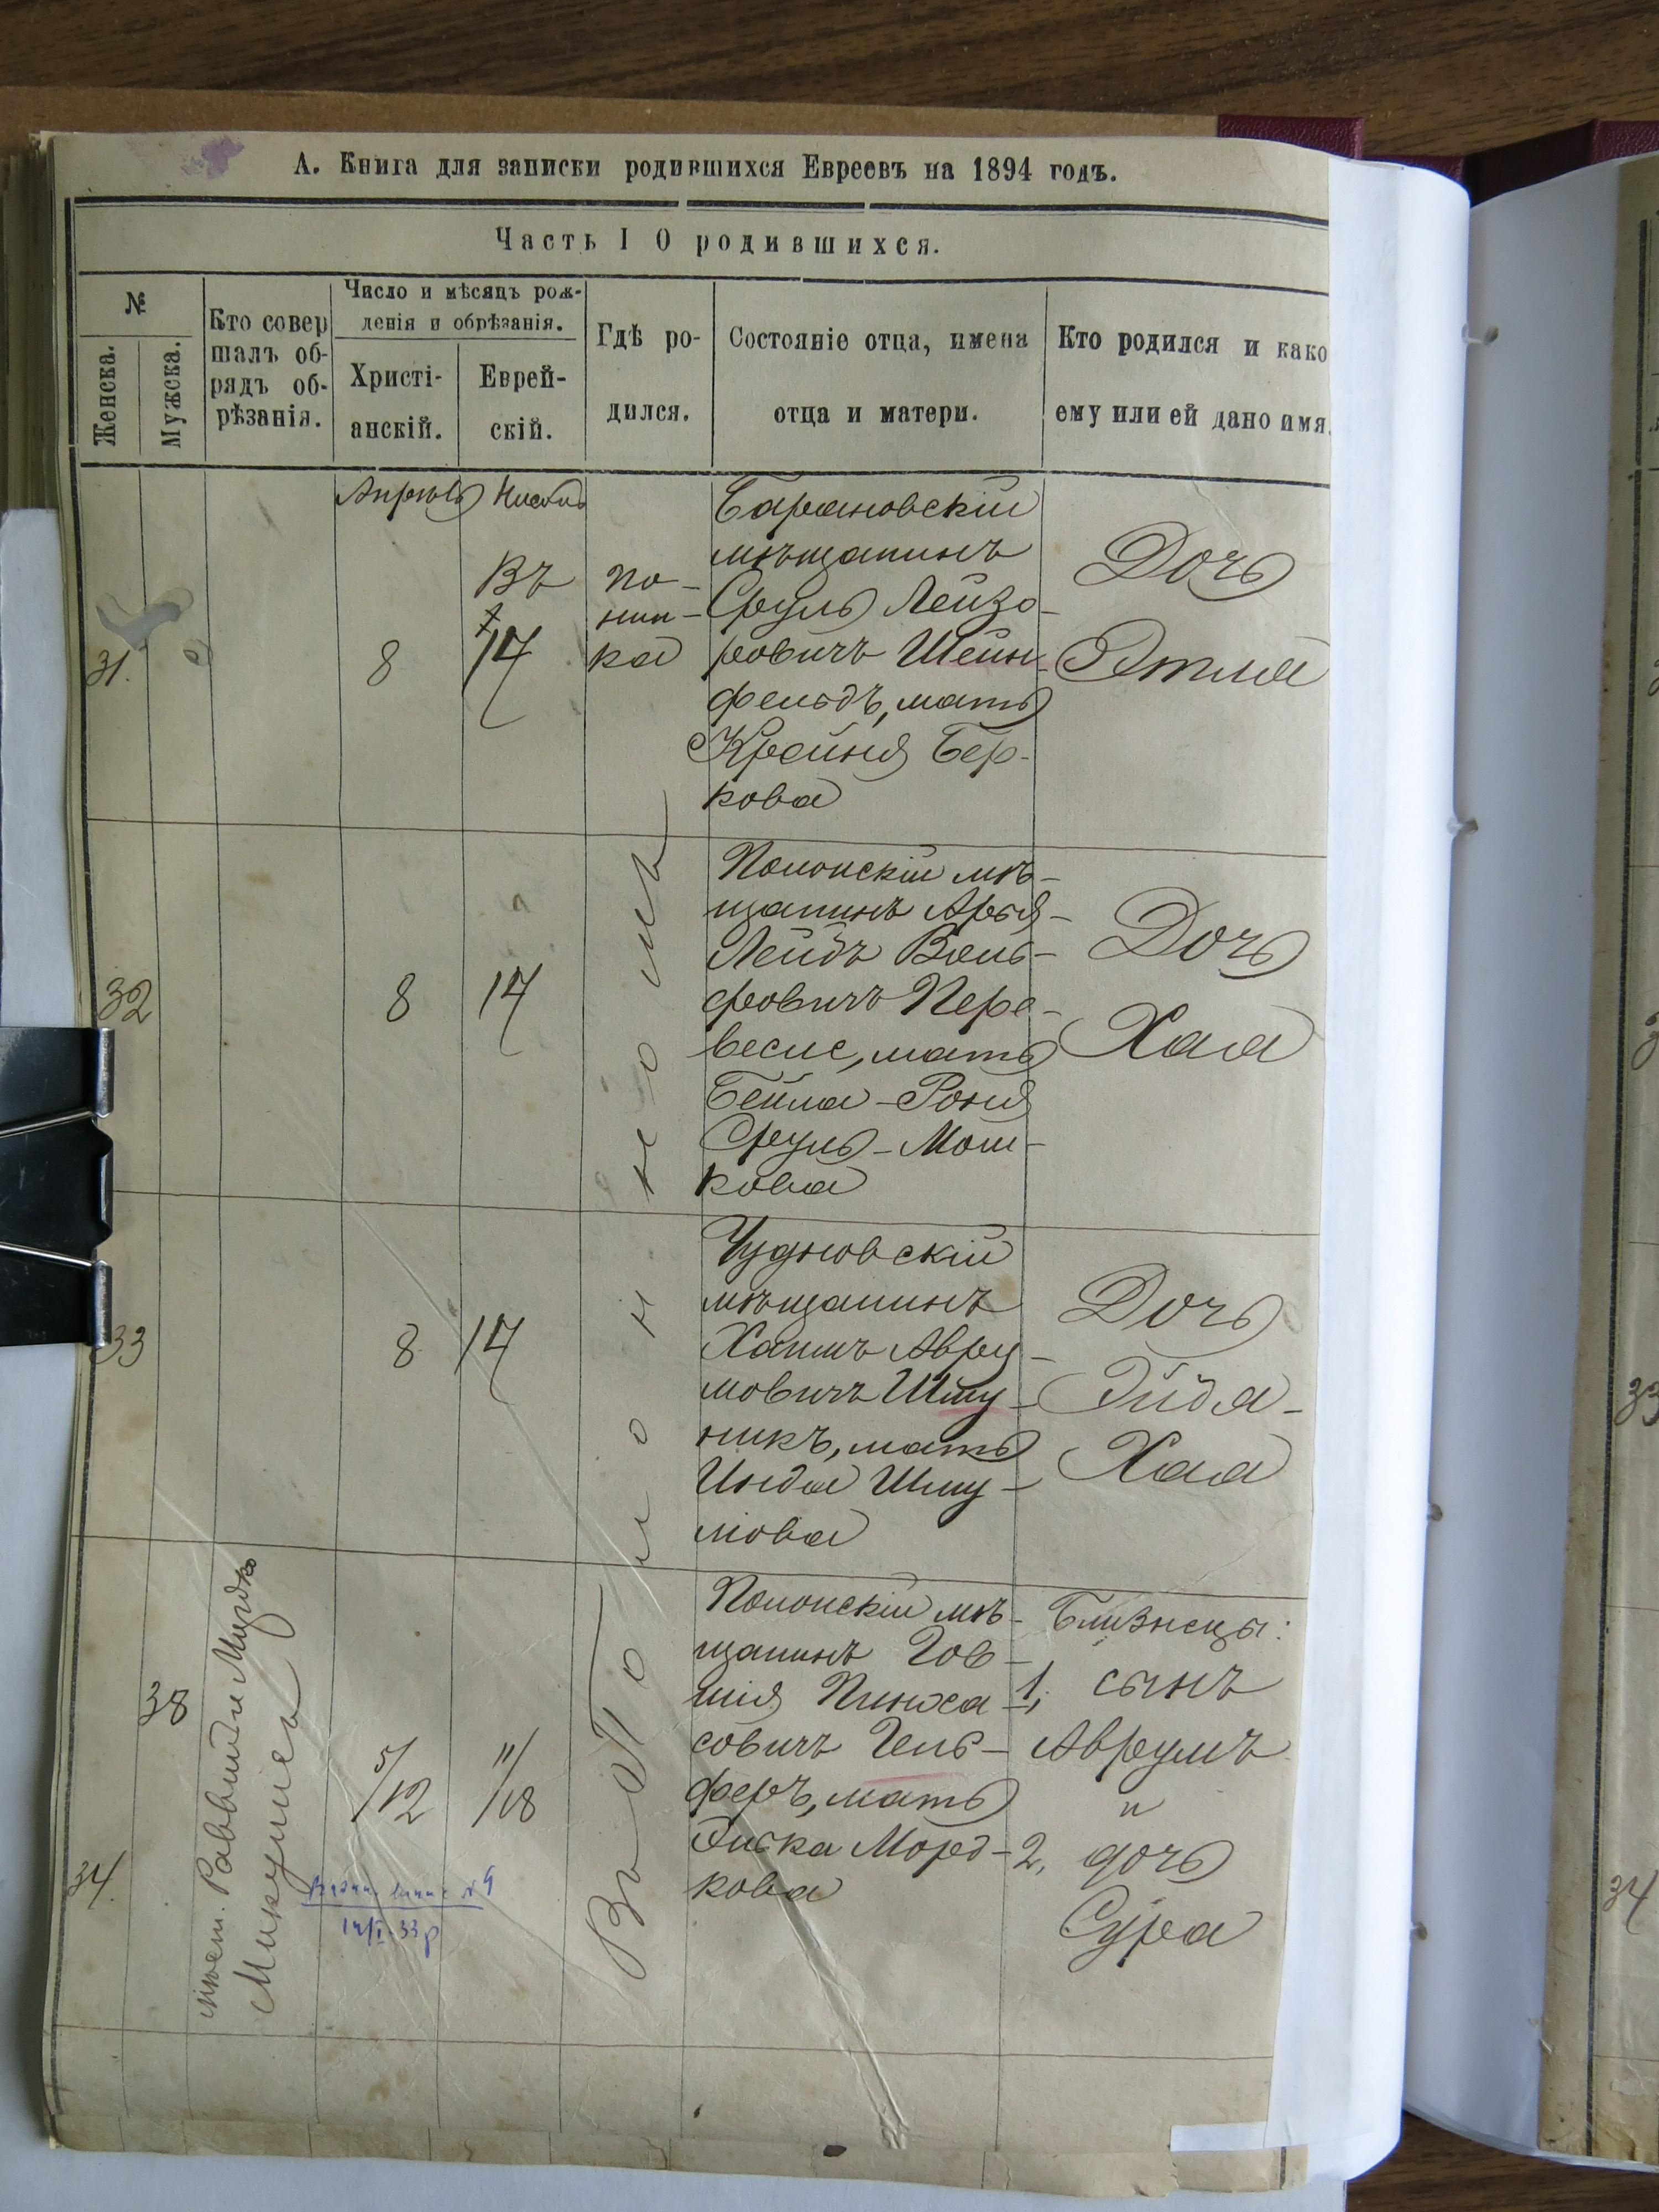 А. Книга для записки родившихся Евреевъ на 1894 годъ.
Часть I О родившихся.
№
Женска.
Мужска.
Кто совер
шалъ об-
рядъ об-
рѣзанія.
Число и мѣсяцъ рож-
денія и обрѣзанія.
Христі-
анскій.
Еврей-
скій.
Гдѣ ро-
дился.
Состояніе отца, имена
отца и матери.
Кто родился и како
ему или ей дано имя.
Апрель
31.
8
14
Въ
по-
нин-
ка
Барановскій
мѣщанинъ
Сруль Лейзо-
ровичъ Шейн-
фельдъ, мать
Крейня Бер-
кова
Дочь
Этля
32
8
14
Полонскій мѣ-
щанинъ Арья-
Лейбъ Воль-
фовичъ Пере-
весис, мать
Бейла-Роня
Сруль-Мош-
кова
Дочь
Хая
33
8
14
Чудновскій
мѣщанинъ
Хаимъ Авру-
мовичъ Шму-
никъ, мать
Инда Шму-
лова
Дочь
Эйдя-
Хая
34.
38
Равви
5/12
11/18
Въ По
Полонскій мѣ-
щанинъ Гов-
шія Пинха-
совичъ Гель-
феръ, мать
Эиска Морд-
кова
Близнецы:
1, сынъ
Аврумъ
и
2, дочь
Сура
№ 4
33
34